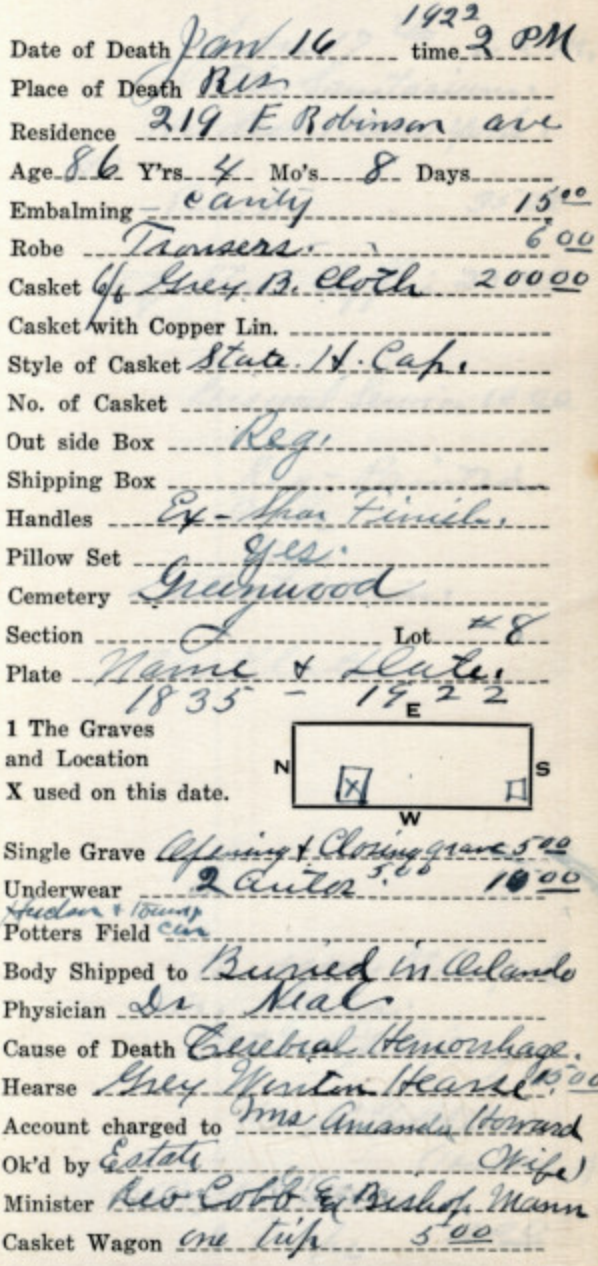 1922
Date of Death Jan 16 time 2 PM
Place of Death Res
Residence 219 E Robinson ave
Age 86 Y'rs 4 Mo's 8 Days
Embalming cavity 15 00
Robe Trousers. 6 00
Casket 6/6 Grey B. Cloth 200 00
Casket with Copper Lin.
Style of Casket State H. Cap.
No. of Casket
Out side Box Reg.
Shipping Box
Handles Ex - Finish.
Pillow Set Yes.
Cemetery Greenwood
Section J Lot #8
Plate Name & Date.
1835 - 1922
E
1 The Graves
and Location
X used on this date.
N X S
W
Single Grave Opening & Closing grave 5 00
Underwear 2 autos 5.00 10 00
Hudson &
Potters Field car
Body Shipped to Buried in Orlando
Physician Dr Neal
Cause of Death Cerebral Hemorrhage.
Hearse Grey Winton Hearse 15 00
Account charged to Mrs Amanda Howard
Ok'd by Estate (Wife)
Minister Rev Cobb & Bishop Mann
Casket Wagon one trip 5 00